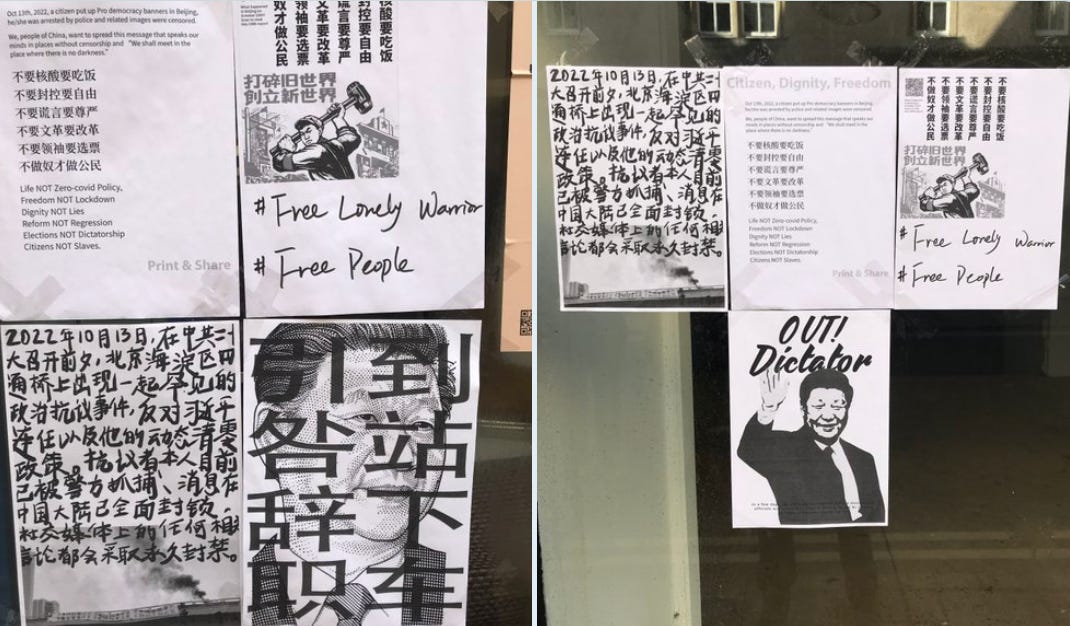 Oct 13th, 2022, a citizen put up Pro democracy banners in Beijing,
he/she was arrested by police and related images were censored.
We, people of China, want to spread this message that speaks our
minds in places without censorship and "We shall meet in the
place where there is no darkness."
不要核酸要吃饭
不要封控要自由
不要谎言要尊严
不要文革要改革
不要领袖要选票
不做奴才做公民
Life NOT Zero-covid Policy,
Freedom NOT Lockdown
Dignity NOT Lies
Reform NOT Regression
Elections NOT Dictatorship
Citizens NOT Slaves.
Print & Share
核酸要吃饭
封控要自由
谎言要尊严
文革要改革
领袖要选票
奴才做公民
打碎旧世界
创立新世界
# Free Lonely Warrior
# Free People
2022年10月13日,在中共二十
大召开前夕,北京海淀区四
通桥上出现一起罕见的
政治抗议事件,反对习近平
连任以及他的动态清零
政策。抗议者本人目前
已被警方抓捕、消息在
中国大陆已全面封锁,
社交媒体上的任何相
言论都会采取永久封禁。
到站下车
引咎辞职
2022年10月13日,在中共二十
大召开前夕,北京海淀区四
通桥上出现一起罕见的
政治抗议事件,反对习近平
连任以及他的动态清零
政策。抗议者本人目前
已被警方抓捕、消息在
中国大陆已全面封锁,
社交媒体上的任何相
言论都会采取永久封禁。
Citizen, Dignity, Freedom
Oct 13th, 2022, a citizen put up Pro democracy banners in Beijing,
he/she was arrested by police and related images were censored.
We, people of China, want to spread this message that speaks our
minds in places without censorship and "We shall meet in the
place where there is no darkness."
不要核酸要吃饭
不要封控要自由
不要谎言要尊严
不要文革要改革
不要领袖要选票
不做奴才做公民
Life NOT Zero-covid Policy,
Freedom NOT Lockdown
Dignity NOT Lies
Reform NOT Regression
Elections NOT Dictatorship
Citizens NOT Slaves.
Print & Share
不要核酸要吃饭
不要封控要自由
不要谎言要尊严
不要文革要改革
不要领袖要选票
不做奴才做公民
打碎旧世界
创立新世界
# Free Lonely Warrior
# Free People
OUT!
Dictator